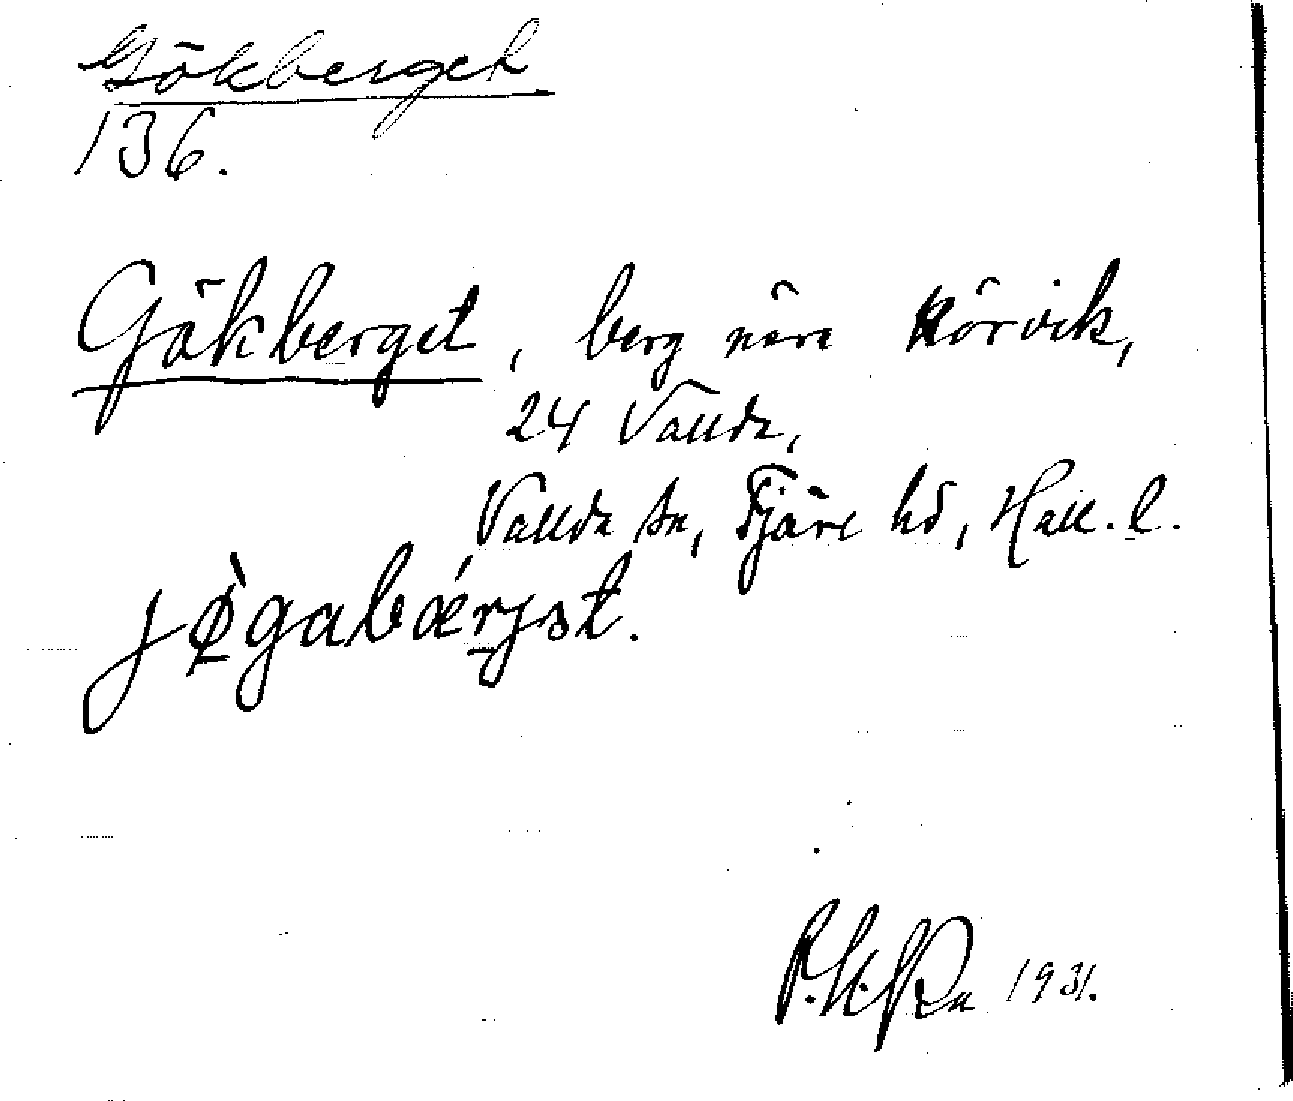 Gökberget
136.
Gökberget, berg nära Körvik,
24 Vallda,
Vallda sn, Fjäre hd, Hall. l.
1931.